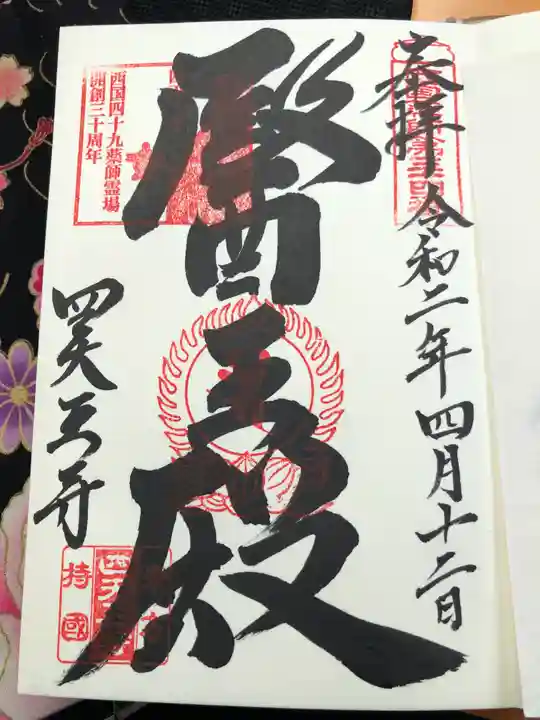 奉拝 令和二年四月十二日
醫王殿
西国四十九薬師霊場
開創三十周年
四天王寺
持國